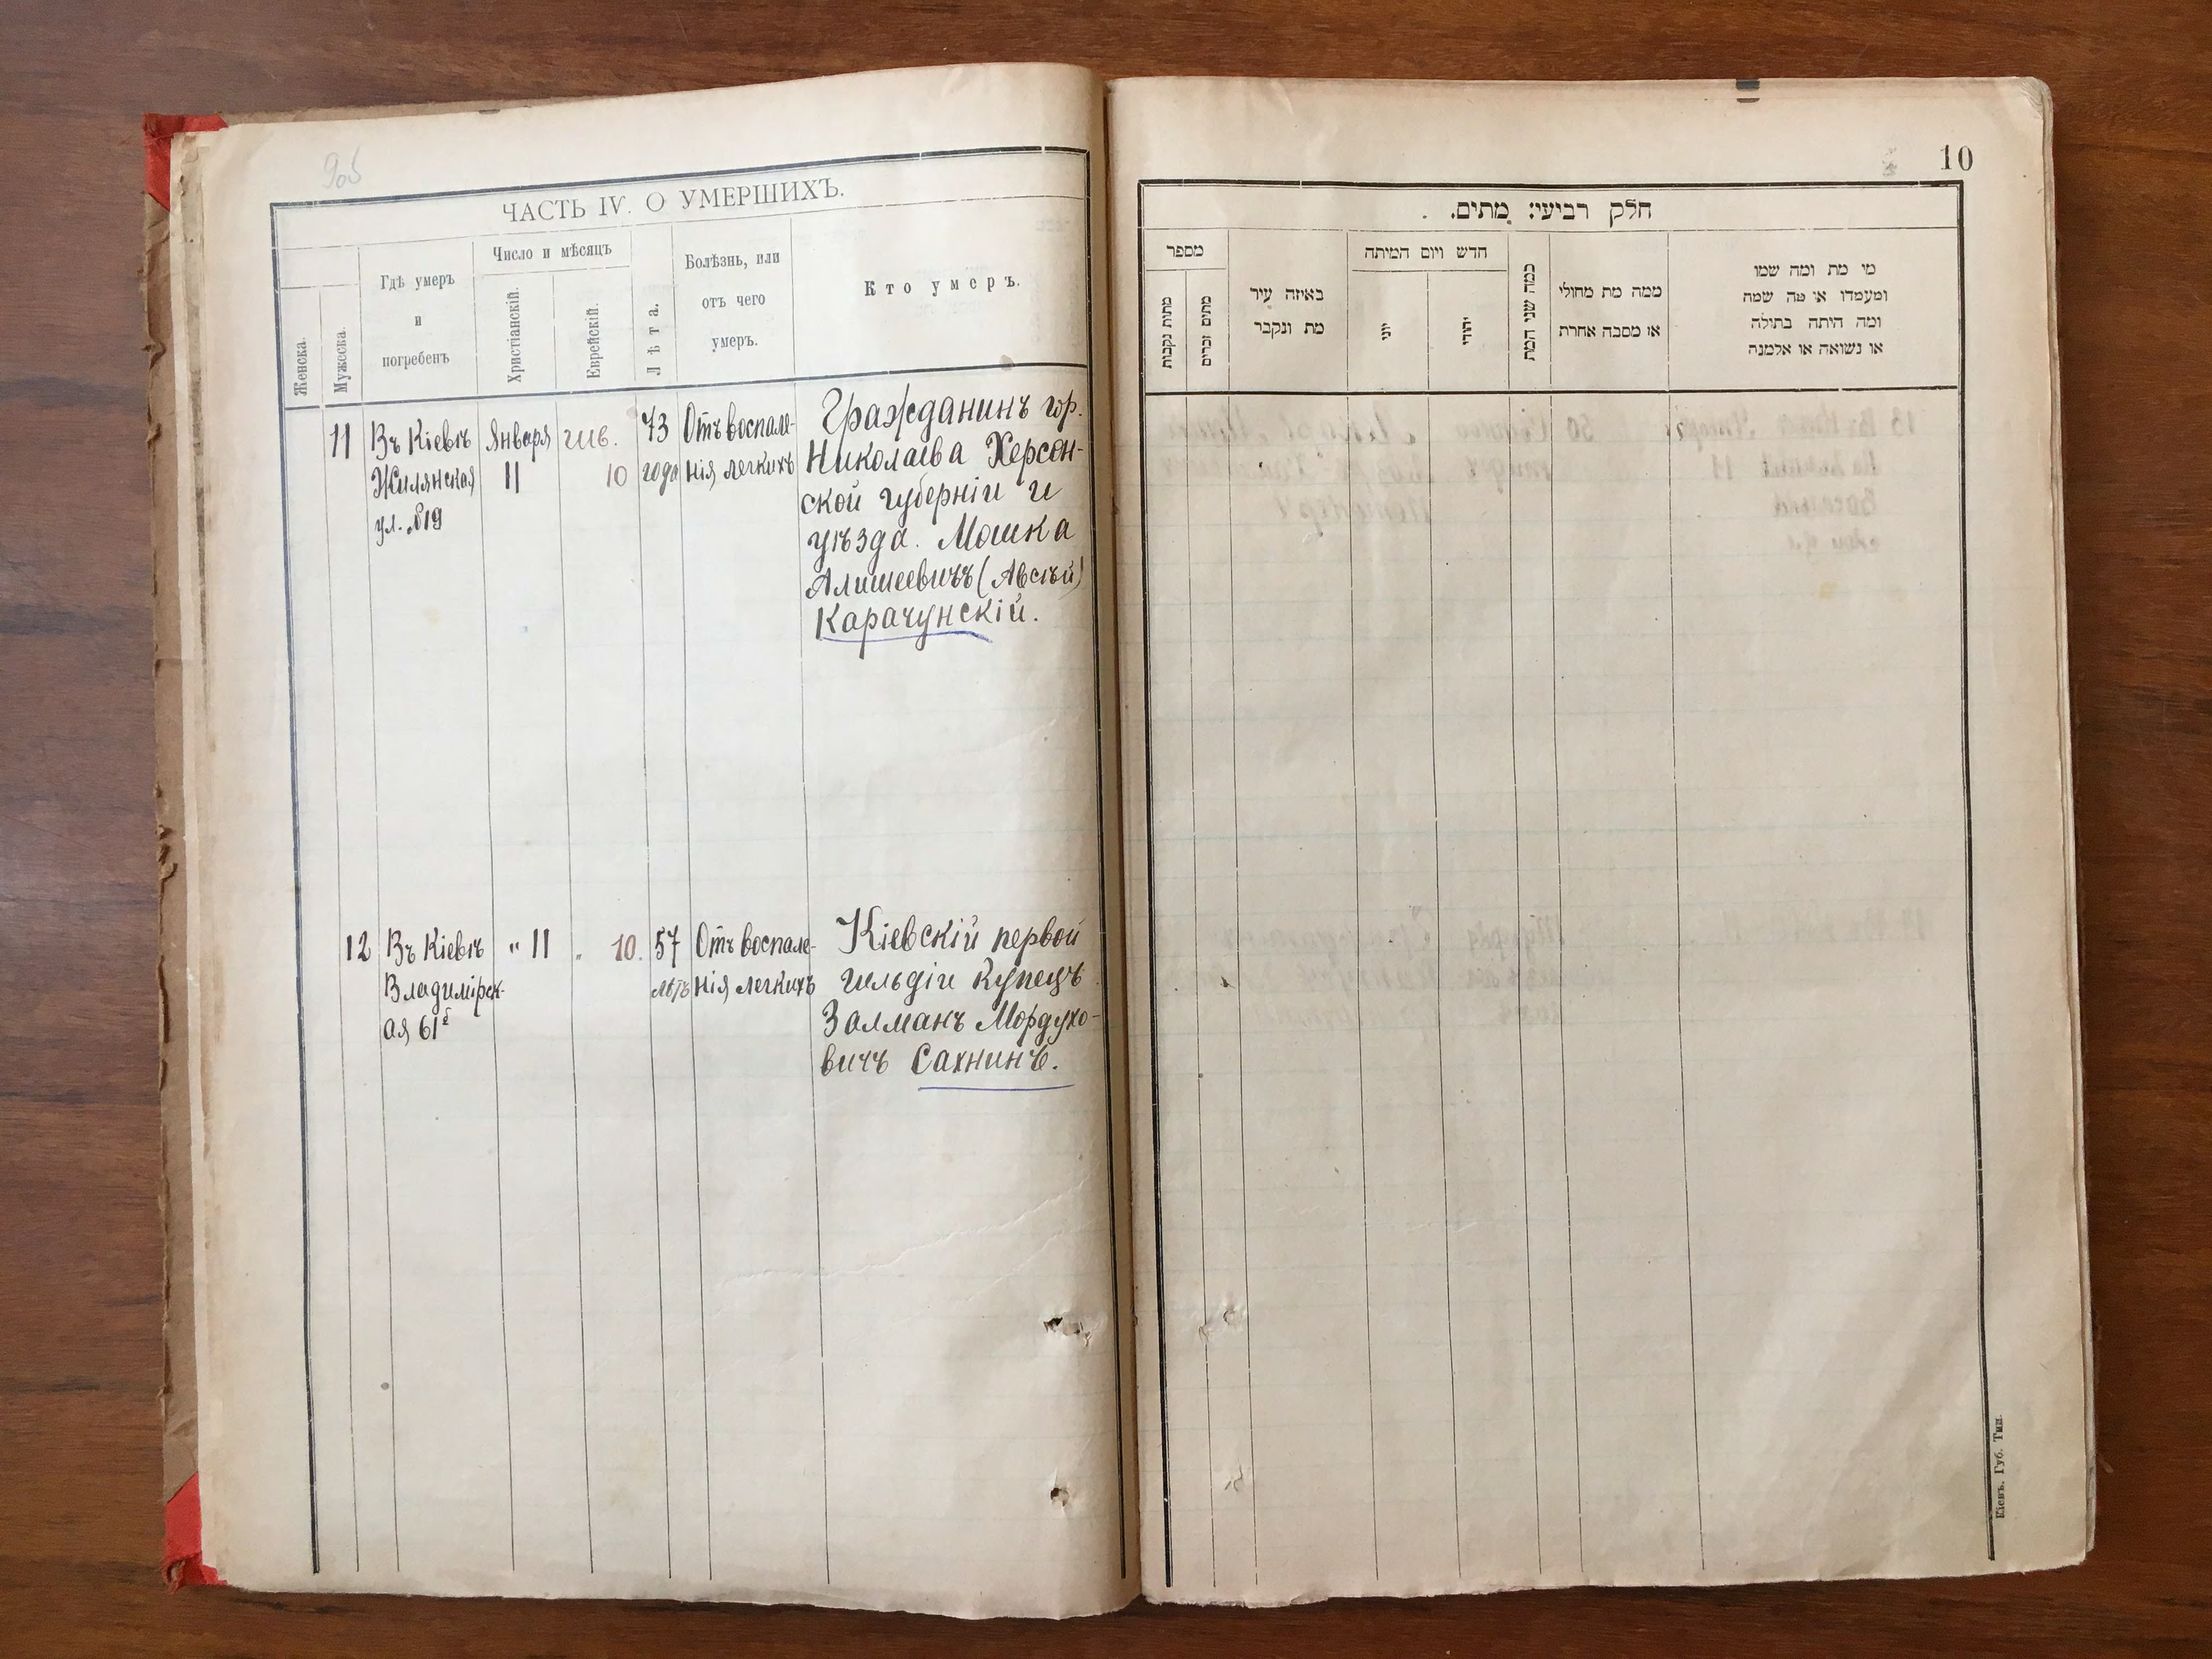 9об
ЧАСТЬ IV. О УМЕРШИХЪ.
Женска.
Мужеска.
Гдѣ умеръ
и
погребенъ
Число и мѣсяцъ
Христіанскій.
Еврейскій.
Лѣта.
Болѣзнь, или
отъ чего
умеръ.
Кто умеръ.
11
Въ Кіевѣ
Жилянская
ул. №19
Января
11
10
73
года
Отъ воспале-
нія легкихъ
Гражданинъ гор.
Николаева Херсон-
ской губерніи и
уѣзда. Мошка
(Авсѣй)
Карачунскій.
12
Въ Кіевѣ
Владимірск-
ая 61
" 11
" 10.
57
лѣтъ
Отъ воспале-
нія легкихъ
Кіевскій первой
гильдіи Купецъ
Залманъ Мордухо-
вичъ Сахнинъ.
10
חלק רביעי: מתים.
מספר
מתות נקבות
מתים זכרים
באיזה עיר
מת ונקבר
חדש ויום המיתה
יוני
יהודי
כמה שני המת
ממה מת מחולי
או מסבה אחרת
מי מת ומה שמו
ומעמדו או מה שמה
ומה היתה בתולה
או נשואה או אלמנה
Кіевъ. Губ. Тип.